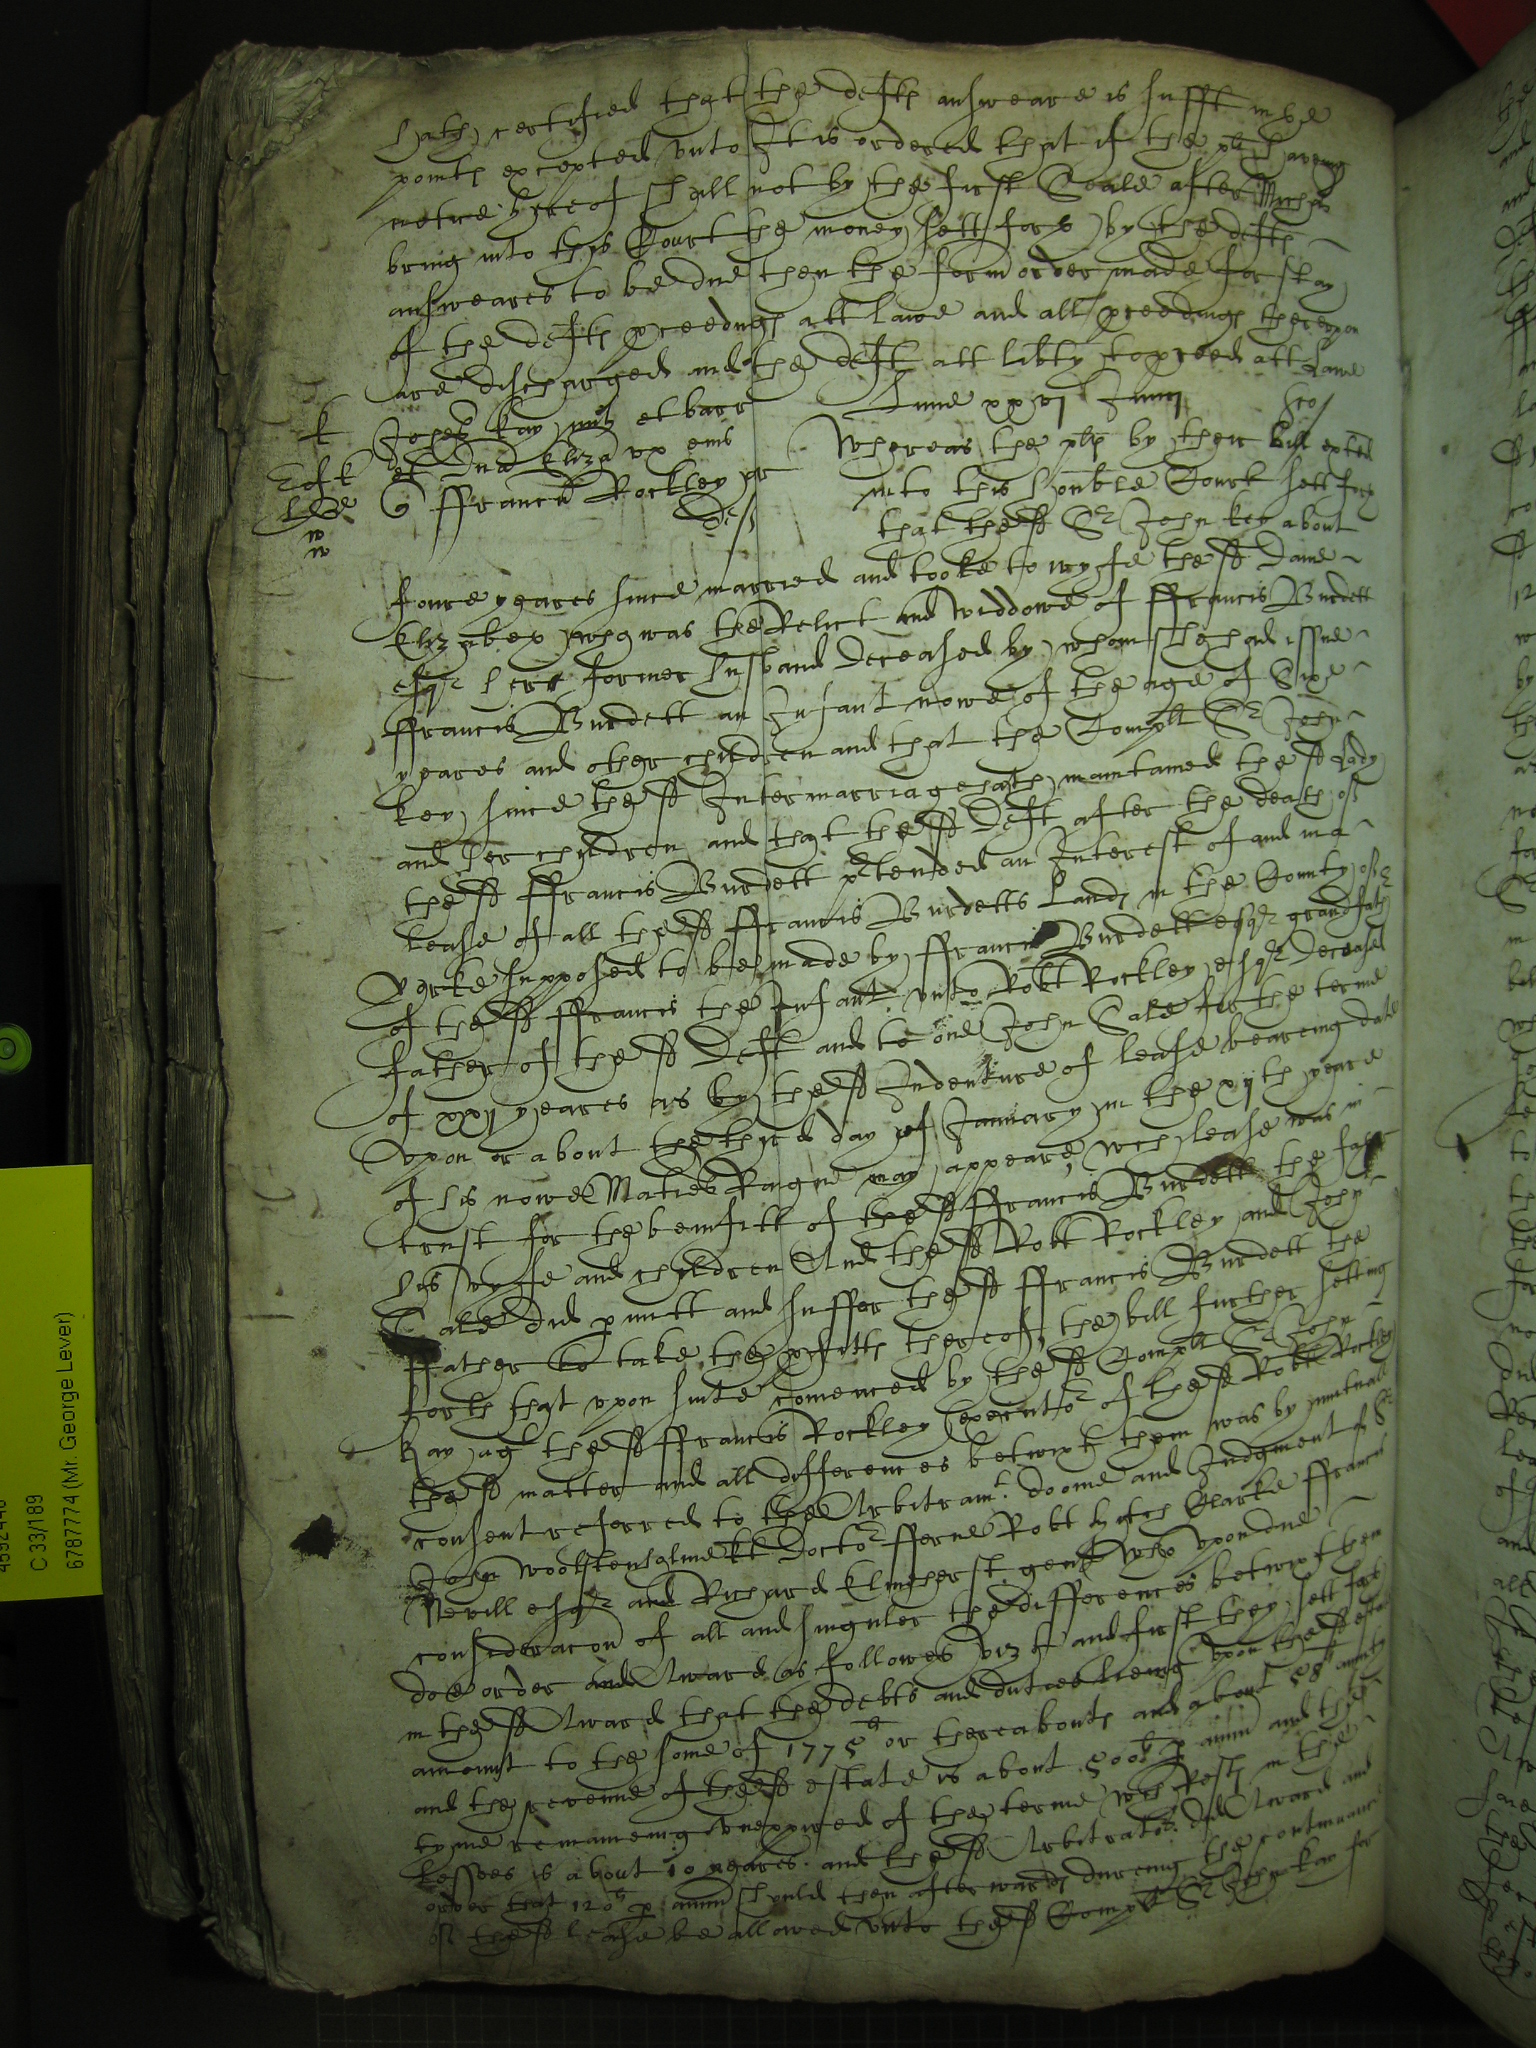 hath certified that the defts answeare is sufft in the
points excepted vnto It is ordered that if the plt having
notice hereof shall not by the first Seale after Michas
bring into this Court the money sett forth by the defts
answeares to be due then the form order made for stay
of the defts pceedings att lawe and all pceedings therevpon
are discharged and the deft att libty to pceed att Lawe
Lune xxvj Junij
k Johes kay miles et barr
et Dna Eliza vx eius
ffrancus Rockley ar
def
Whereas the plts by their bill exhited
into this honble Court sett forth
that the sd Sr John key about
foure yeares since married and tooke to wyfe the sd Dame
Elizabeth who was the Relict and widdowe of ffrancis Burdett
esqr her former husband deceased by whom she had issue
ffrancis Burdett an Infant nowe of the age of Sixe
yeares and other children and that the Complt Sr John
key since the sd Intermarriage hath maintained the sd Lady
and her children and that the sd Deft after the death of
the sd ffrancis Burdett ptended an Interest of and in a
lease of all the sd ffrancis Burdetts Lands in the County of
Yorke supposed to be made by ffrancis Burdett esqr grandfathr
of the sd ffrancis the Infant vnto Robt Rockley esqr deceased
father of the sd Deft and to one John Cale for the terme
of xxj yeares as by the sd Indenture of lease beareing date
vpon or about the third day of January in the xijth yeare
of his nowe Maties Raigne may appeare wch lease was in
trust for the benifitt of the sd ffrancis Burdett the fathr
his wyfe and chyldren And the sd Robt Rockley and John
Cale did pmitt and suffer the sd ffrancis Burdett the
ffather to take the pfitts thereof, the bill further setting
forth that vpon suite comenced by the sd Complt Sr John
Kay agt the sd ffrancis Rockley executor of the sd Robt Rockley
the sd matter and all differences betwixt them was by mutuall
consent referred to the Arbitramt doome and Judgment of Sr
John Woolstenholme kt Doctor fferne Robt Clarke ffrancis
Nevill esqr and Richard Elmherst gent who vpon due
consideracon of all and singuler the differences betwixt them
doe order and Award as followes vizt and first they sett forth
in the sd Award that the debts and duties lieing vpon the sd estate
amount to the some of 1775li or thereabouts and about 58li annuity
and the revenue of the sd estate is about 500li p annu and the
tyme remaineing vnexpired of the terme wch Rests in the
Lessees is about 10 yeares. and the sd Arbitrators did Award and
order that 120li p annu should then afterwards dureing the continuance
of the sd lease be allowed vnto the sd Complt Sr John Kay for
C 33/189
6787774 (Mr. George Lever)